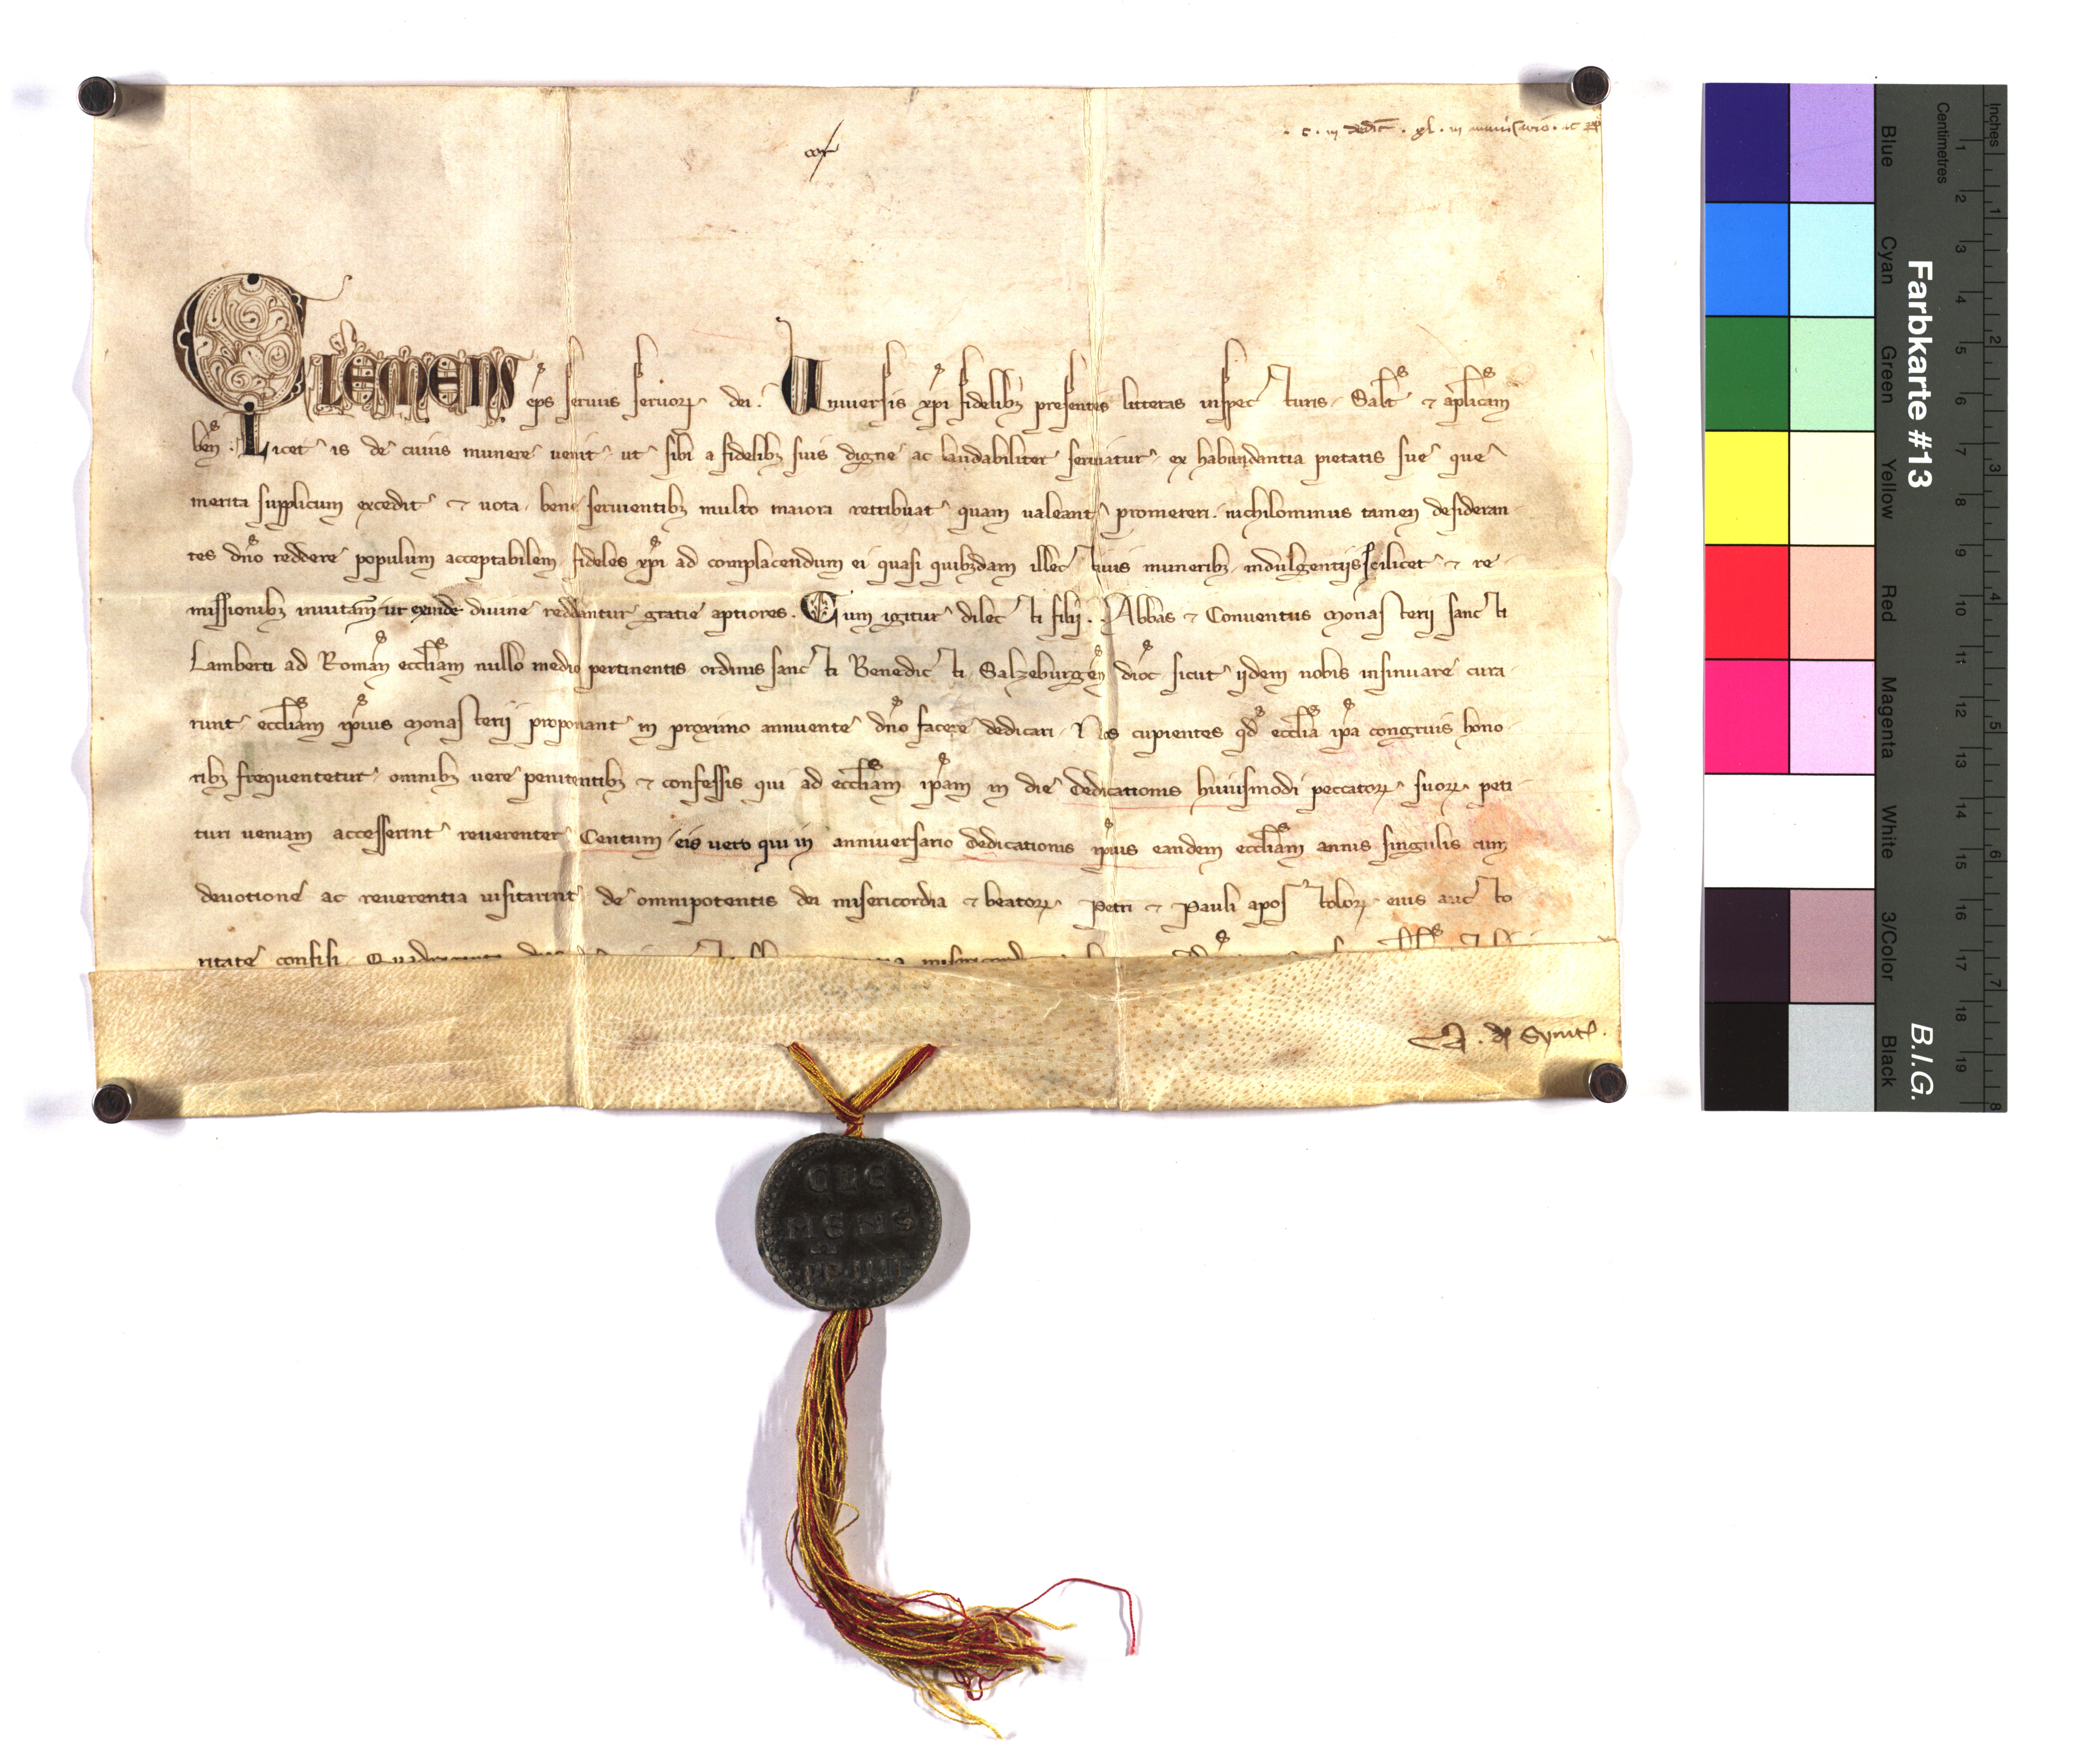 · c · in dedic̄ · xl · in
Clemens ep̄s seruus seruoꝝ dei. Vniuersis xp̄i fidelibꝫ presentes litteras inspecturis, Salt̄ ⁊ ap̄licam
ben̄. Licet is de cuius munere uenit, ut sibi a fidelibꝫ suis digne ac laudabiliter seruiatur, ex habundantia pietatis sue que
merita supplicum excedit ⁊ uota, bene seruientibꝫ multo maiora retribuat quam ualeant promereri. nichilominus tamen desideran
tes dn̄o reddere populum acceptabilem, fideles xp̄i ad complacendum ei quasi quibꝫdam illectiuis muneribꝫ, indulgentiis scilicet ⁊ re
missionibꝫ inuitam̄, ut exinde diuine reddantur gratie aptiores. Cum igitur dilecti filij . . Abbas ⁊ Conuentus Monasterij sancti
Lamberti ad Roman̄ eccl̄iam nullo medio pertinentis ordinis sancti Benedicti, Salzeburgen̄ dioc̄ sicut ijdem nobis insinuare cura
runt, eccl̄iam ip̄ius Monasterij proponant in proximo annuente dn̄o facere dedicari, Nos cupientes qd̄ eccl̄ia ip̄a congruis hono
ribꝫ frequentetur, omnibꝫ uere penitentibꝫ ⁊ confessis qui ad eccl̄iam ip̄am in die dedicationis huiusmodi peccatoꝝ suoꝝ peti
turi ueniam accesserint reuerenter Centum, eis uero qui in anniuersario dedicationis ip̄ius eandem eccl̄iam annis singulis cum
deuotione ac reuerentia uisitarint, de omnipotentis dei misericordia ⁊ beatoꝝ Petri ⁊ Pauli apostoloꝝ eius aucto
ritate confisi, Quadraginta
A. de
CLE
MENS
PP·IIII
Inches
1 2 3 4 5 6 7 8
Centimetres
1 2 3 4 5 6 7 8 9 10 11 12 13 14 15 16 17 18 19
Farbkarte #13
B.I.G.
Blue
Cyan
Green
Yellow
Red
Magenta
White
3/Color
Black